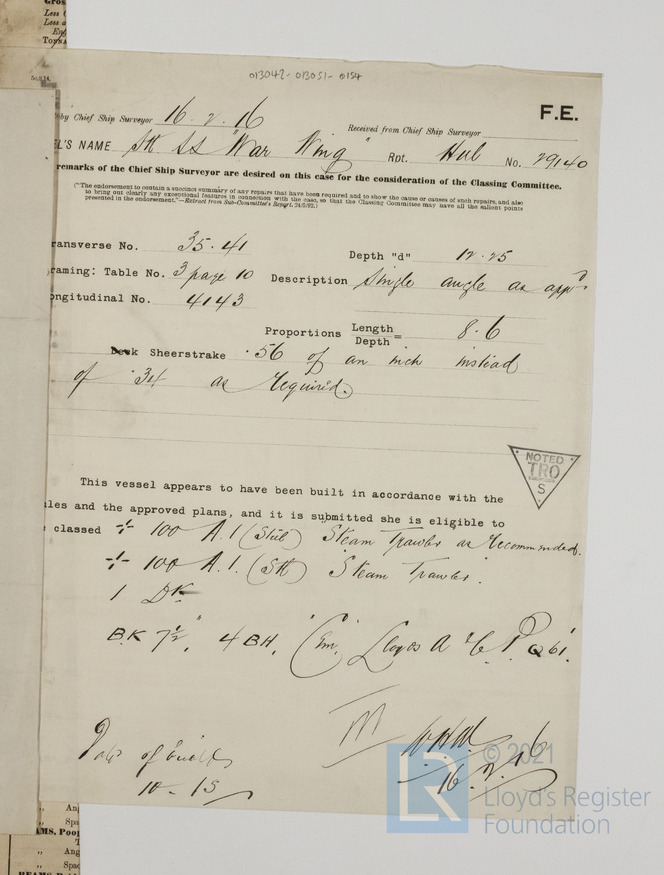 013042-013051-0154
F.E.
by Chief Ship Surveyor 16.2.16
Received from Chief Ship Surveyor
EL'S NAME Stl SS "War Wing" Rpt. Hul No. 29140
remarks of the Chief Ship Surveyor are desired on this case for the consideration of the Classing Committee.
("The endorsement to contain a succinct summary of any repairs that have been required and to show the cause or causes of such repairs, and also
to bring out clearly any exceptional features in connection with the case, so that the Classing Committee may have all the salient points
presented in the endorsement."—Extract from Sub-Committee's Report, 24/5/92.)
ransverse No. 35.41
Depth "d" 12.25
raming: Table No. 3 page 10 Description Single angle as appd
ongitudinal No. 4143
Proportions Length
Depth = 8.6
Deck Sheerstrake .56 of an inch instead
of .34 as required.
NOTED
TRO
S
This vessel appears to have been built in accordance with the
ules and the approved plans, and it is submitted she is eligible to
classed 100 A.1 (Steel) Steam Trawler as recommended.
100 A.1. (Stl) "Steam Trawler".
1 Dk
B.K 7½", 4 BH, (Em.) Lloyds A & C.P. Q 61.
Date of build
10-15
16.2.16
© 2021
LR
Lloyd's Register
Foundation
Gros
Less
Less a
TONNA
An
Spac
AMS, Poop
Ang
Spac